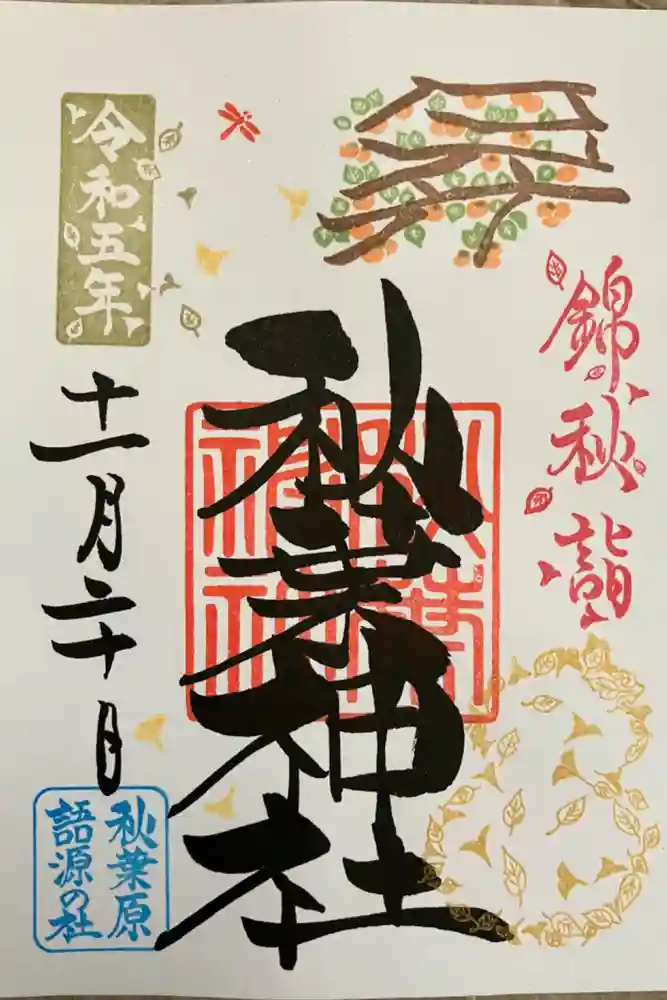 錦秋詣
秋葉神社
令和五年
十一月二十日
秋葉原
語源の社